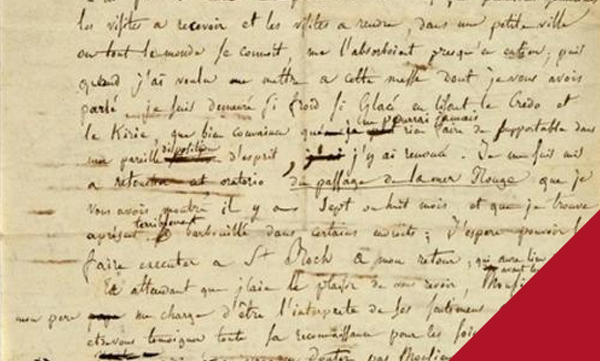 les visites a recevoir et les visites a rendre, dans une petite ville
ou tout le monde se connoit, me l'absorboient presqu'en entier; puis
quand j'ai voulu me mettre a cette messe dont je vous avois
parlé, je suis demeuré si froid si glacé en lisant le Credo et
le Kirie, que bien convaincu que je ne pourrai jamais rien faire de supportable dans
une pareille disposition d'esprit, j'y ai renoncé. Je me suis mis
a retoucher cet oratorio du passage de la mer Rouge que je
vous avois montré il y a sept ou huit mois et que je trouve
apresent terriblement barbouillé dans certains endroits; J'espere pouvoir le
faire executer a St Roch a mon retour, qui aura lieu
En attendant que j'aie le plaisir de vous revoir,
mon pere me charge d'être l'interprete de ses sentimens
et de vous temoigner toute sa reconnaissance pour les